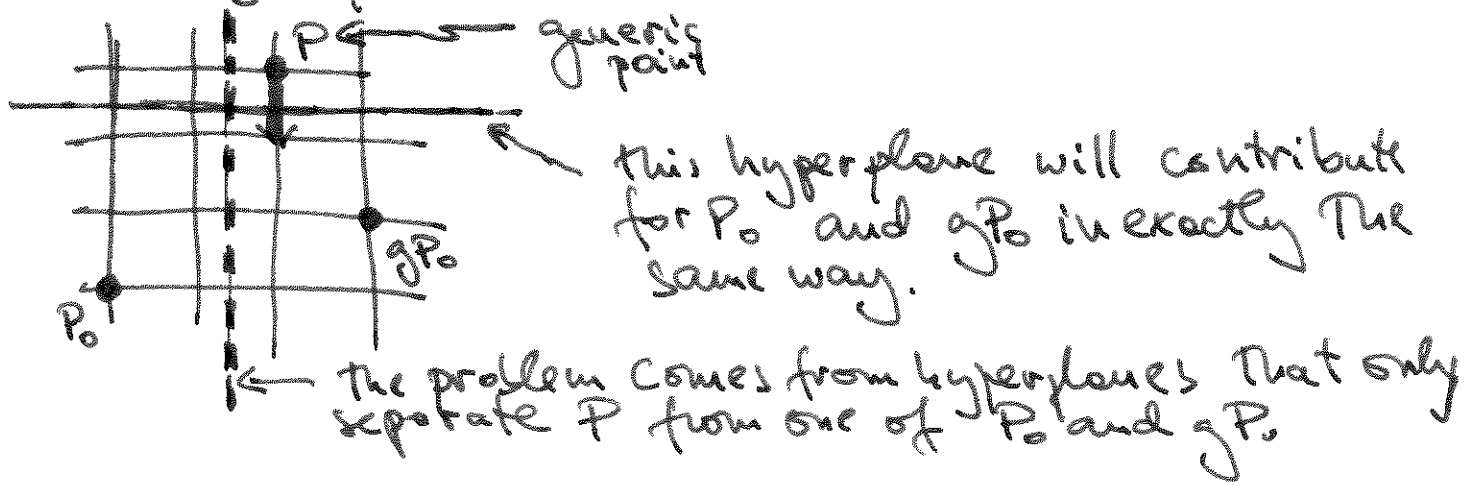 P
generic
point
this hyperplane will contribute
for P₀ and gP₀ in exactly the
same way.
gP₀
P₀
the problem comes from hyperplanes that only
separate P from one of P₀ and gP₀